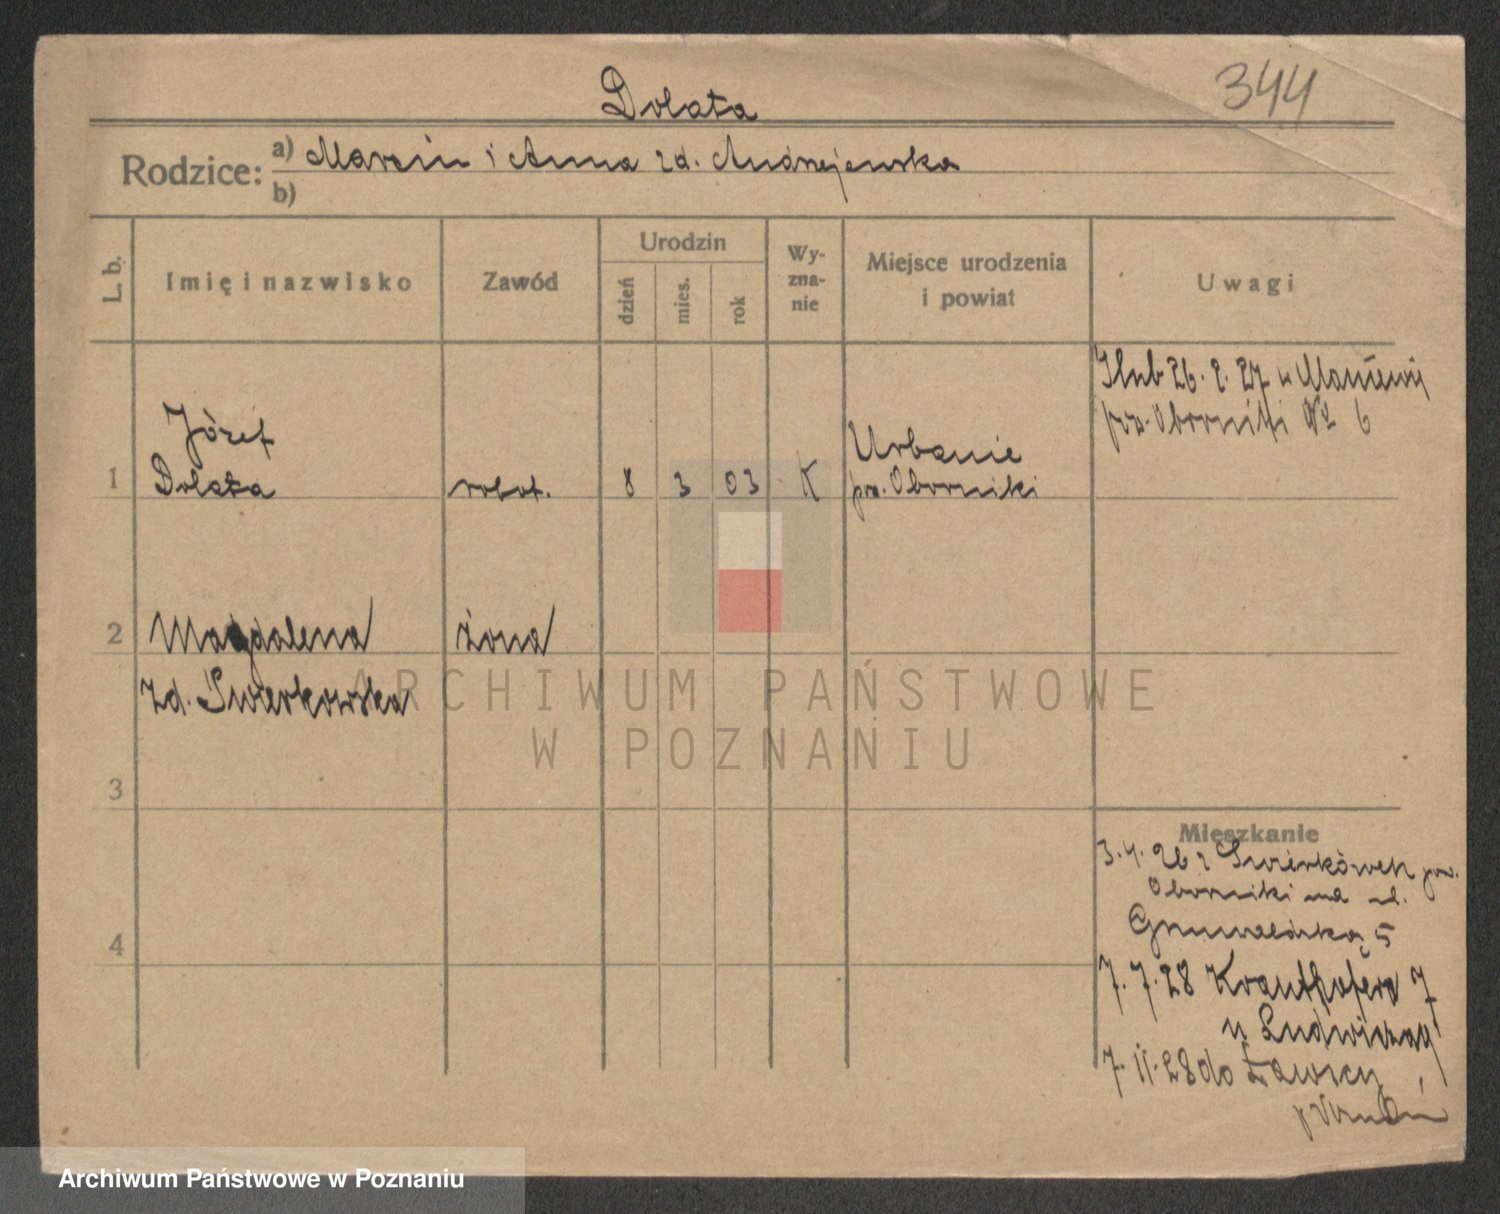 344
Dolata
Rodzice: a) Marcin i Anna zd. Andrzejewska
b)
L. b.
Imię i nazwisko
Zawód
Urodzin
dzień
mies.
rok
Wy-
zna-
nie
Miejsce urodzenia
i powiat
Uwagi
Ślub 26. 2. 27 w
pow. Oborniki № 6
1
Józef
Dolata
robot.
8
3
03
K
Urbanie
pow. Oborniki
2
Magdalena
żona
zd. Świerkowska
ARCHIWUM PAŃSTWOWE
W POZNANIU
3
Mieszkanie
3. 4. 26 z Świerkówek pow.
Oborniki na ul.
Grunwaldzką 5
4
7. 7. 28 Kranthofera 7
u Ludwiczak
7. 11. 28 do Ławicy
Archiwum Państwowe w Poznaniu